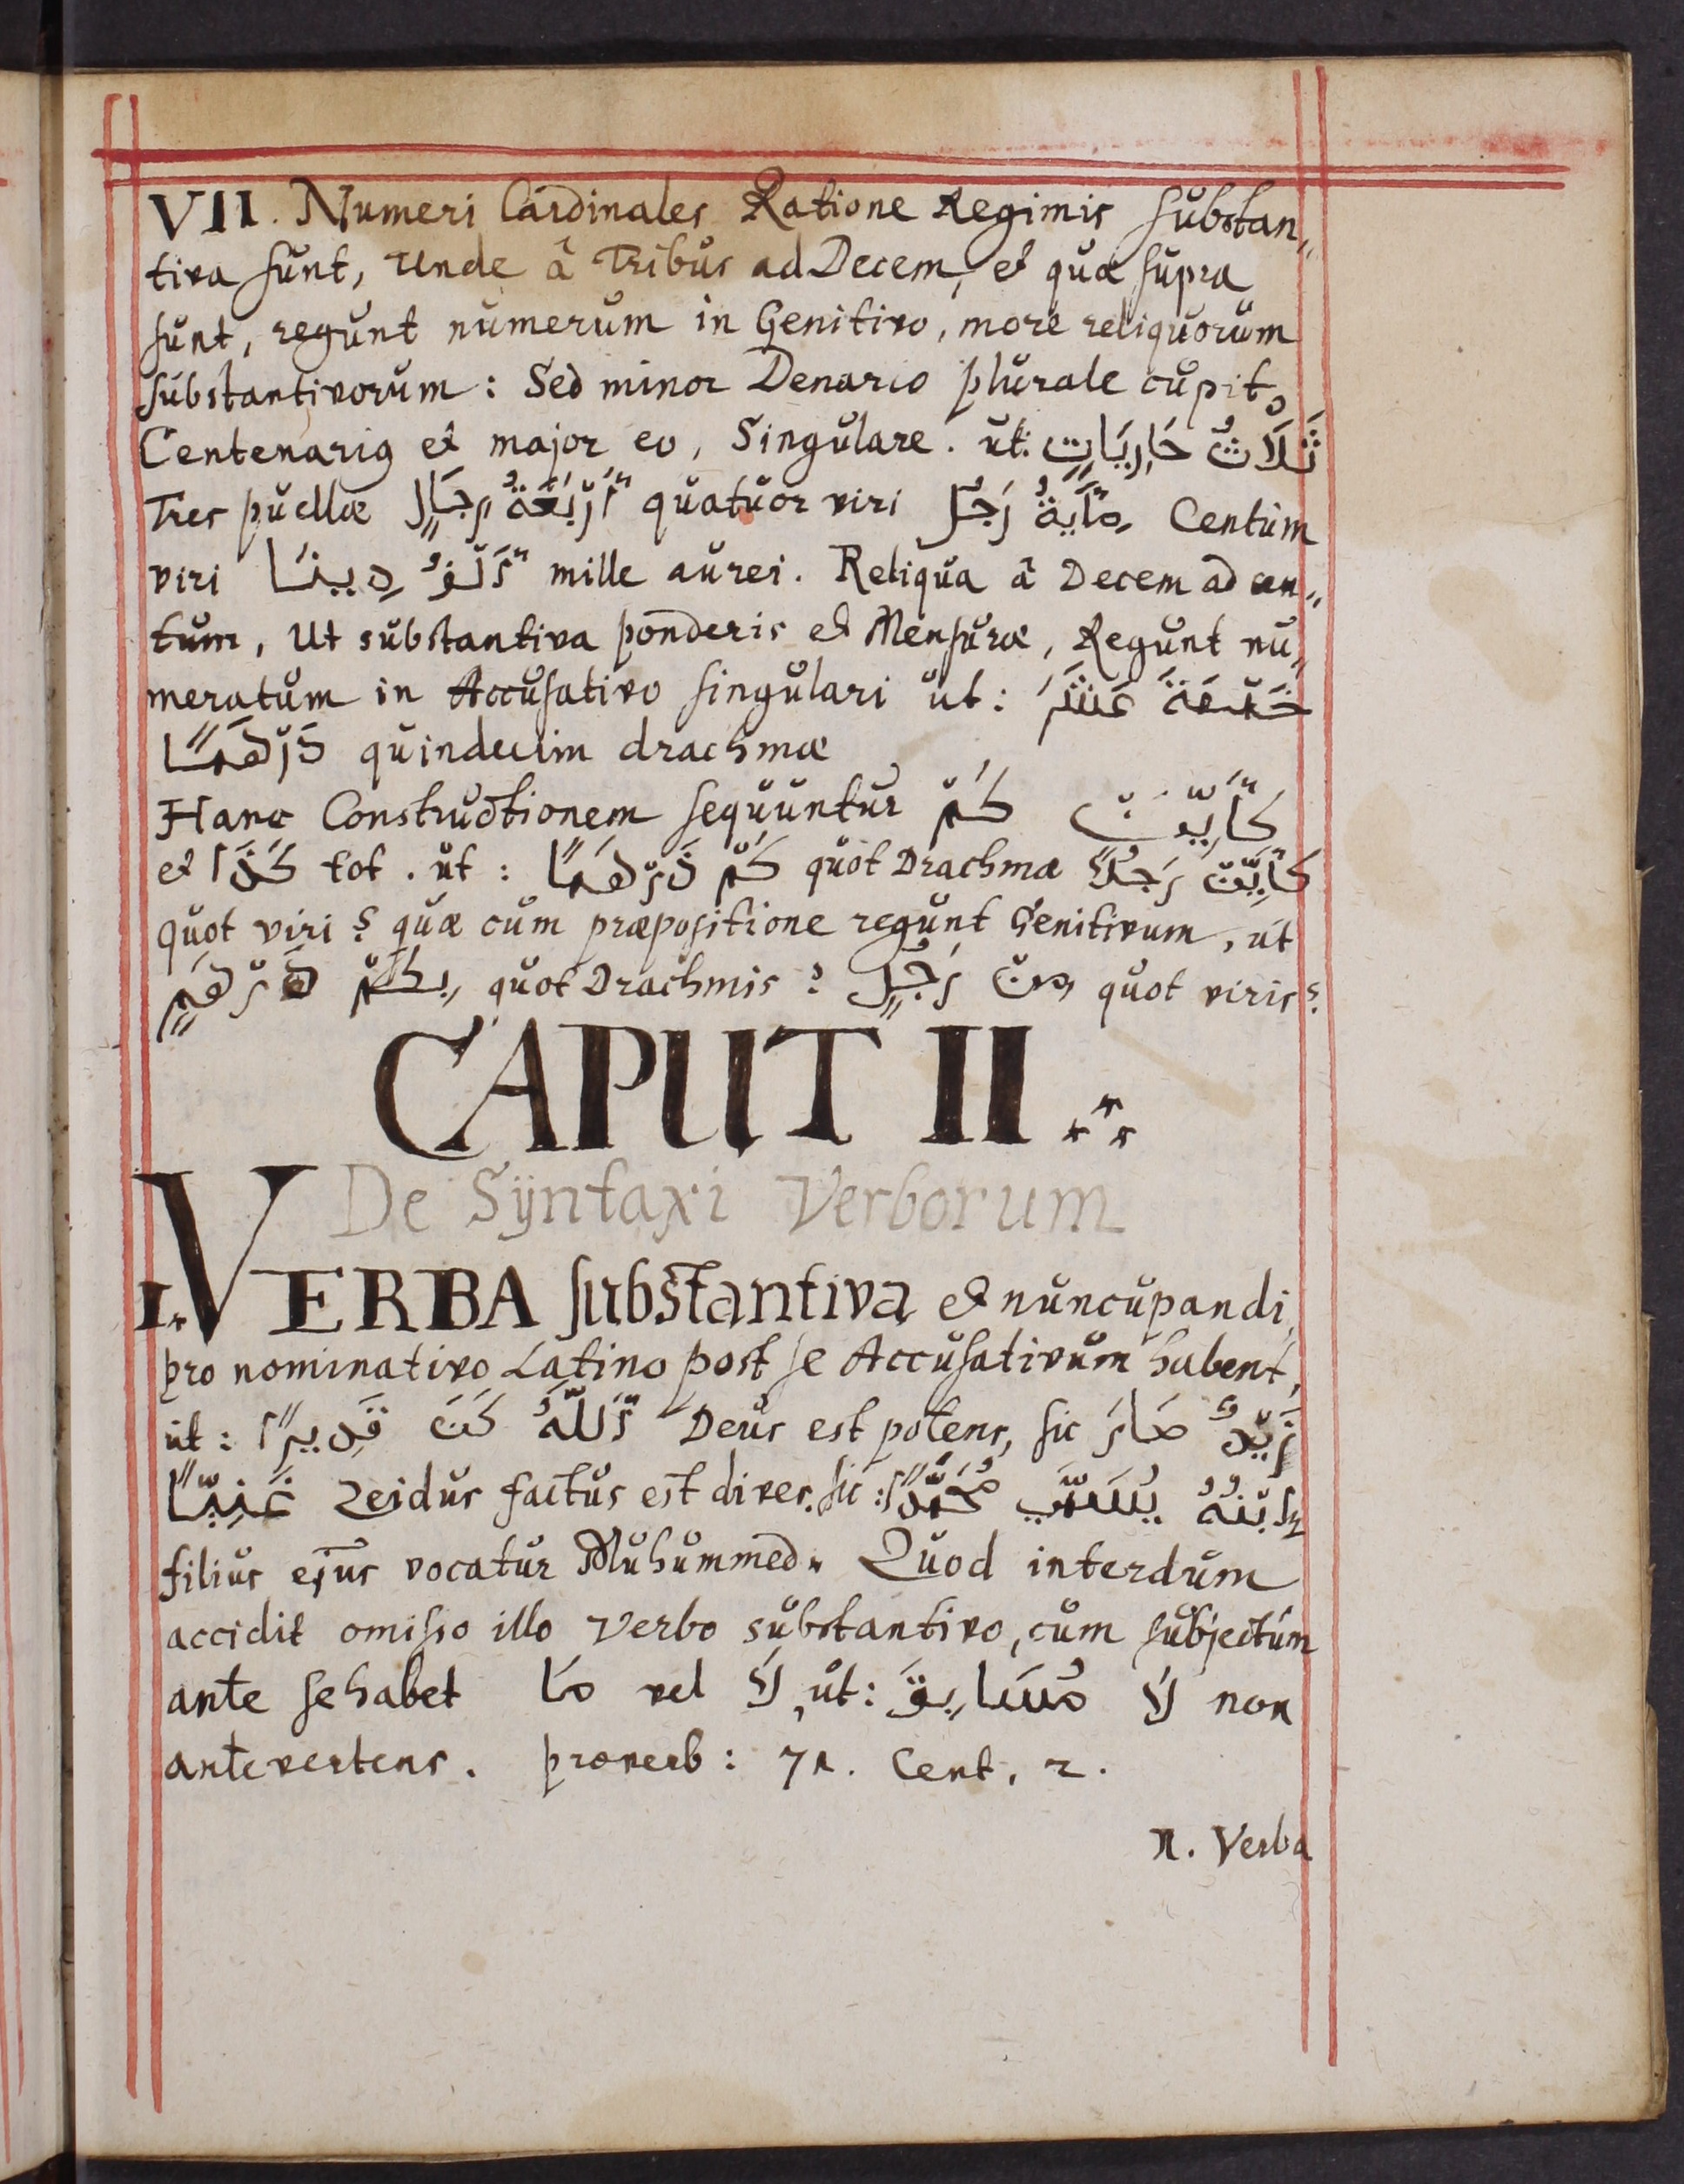 VII. Numeri Cardinales Ratione Regimis substan„
tiva sunt, Unde â Tribus ad Decem, et quæ supra
sunt, regunt numerum in Genitivo, more reliquorum
substantivorum: Sed minor Denario plurale cupit,
Centenarig et major eo, Singulare. ut: ثَلَاثُ جَارِيَاتٍ
Tres puellæ أَرْبَعَةُ رِجَالٍ quatuor viri مِأَيةُ رَجُلٍ Centum
viri أَلْفُ دِينَا mille aurei. Reliqua â Decem ad cen„
tum, Ut substantiva ponderis et Mensuræ, Regunt nu„
meratum in Accusativo singulari ut: خَمْسَةَ عَشَرَ
دَرْهَمًا quindecim drachmæ
Hanc Constructionem sequuntur كَمْ كَأَيِّنْ
et كَذَا tot. ut: كَمْ دَرْهَمًا quot Drachmæ كَأَيِّنْ رَجُلًا
quot viri? quæ cum præpositione regunt Genitivum, ut
بِكَمْ دَرْهَمٍ quot Drachmis? مِنْ رَجُلٍ quot viris?
CAPUT II
De Sÿntaxi Verborum
I. VERBA substantiva et nuncupandi,
pro nominativo Latino post se Accusativum habent,
ut: أَللّٰهُ كَنَ قَدِيرًا Deus est potens, sic زَيْدٌ صَارَ
غَنِيًّا Zeidus factus est dives. sic: إِبْنُهُ يُسَمَّي مُحَمَّدًا
filius ejus vocatur Muhummed. Quod interdum
accidit omisso illo Verbo substantivo, cum subjectum
ante se habet مَا vel لَا, ut: لَا مُسَابِقَ non
antevertens. proverb: 71. Cent. 2.
II. Verba